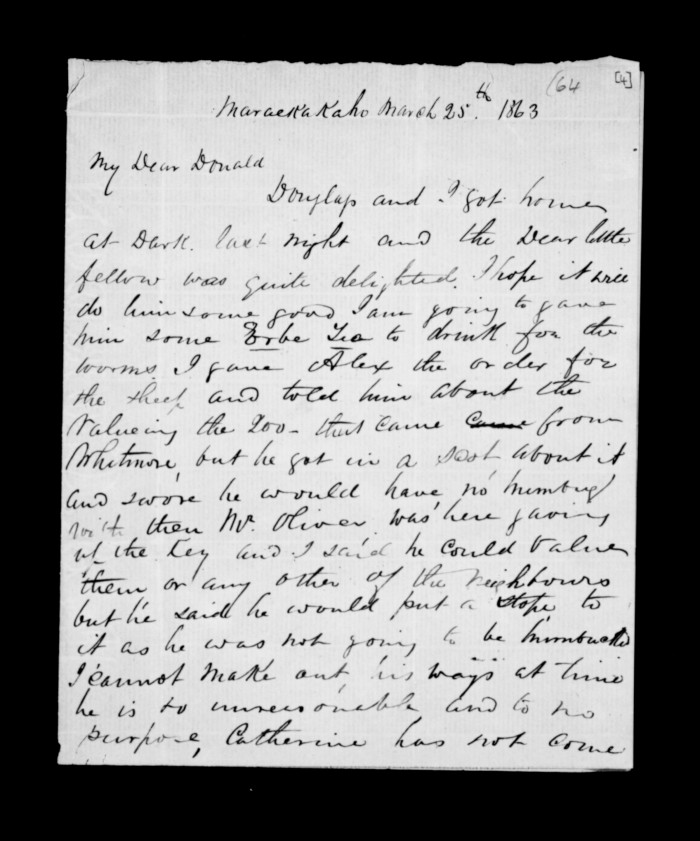 (64 [4]
Maraekakaho March 25th. 1863
My Dear Donald
Douglass and I got home
at Dark last night and the Dear little
fellow was quite delighted. I hope it will
do him some good I am going to gave
him some Erbe Tea to drink for the
worms, I gave Alex the order for
the sheep and told him about the
Valueing the 200 - that came came from
Whitmore, but he got in a about it
and swore he would have no humbug
with them Mr. Oliver was here gaving
up the Key and I said he could Value
them or any other of the Neighbours
but he said he would put a stope to
it as he was not going to be humbucked
I cannot make out his ways at time
he is so unreasonable and to no
purpose, Catherine has not come